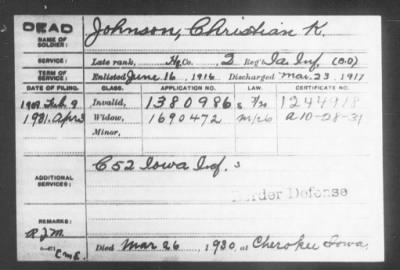 DEAD
NAME OF SOLDIER: Johnson, Christian K.
SERVICE: Late rank, Hq. Co., 2 Reg't Ia. Inf. (B.D)
TERM OF SERVICE: Enlisted June 16, 1916 Discharged Mar. 23, 1917
DATE OF FILING. CLASS. APPLICATION NO. LAW. CERTIFICATE NO.
Feb 9 Invalid, 1380986 1244918
1931 Apr 3 Widow, 1690472 m/26 a 10-28-31
Minor,
ADDITIONAL SERVICES: C 52 Iowa Inf. s
Border Defense
REMARKS:
Died Mar 26, 1930, at Cherokee Iowa